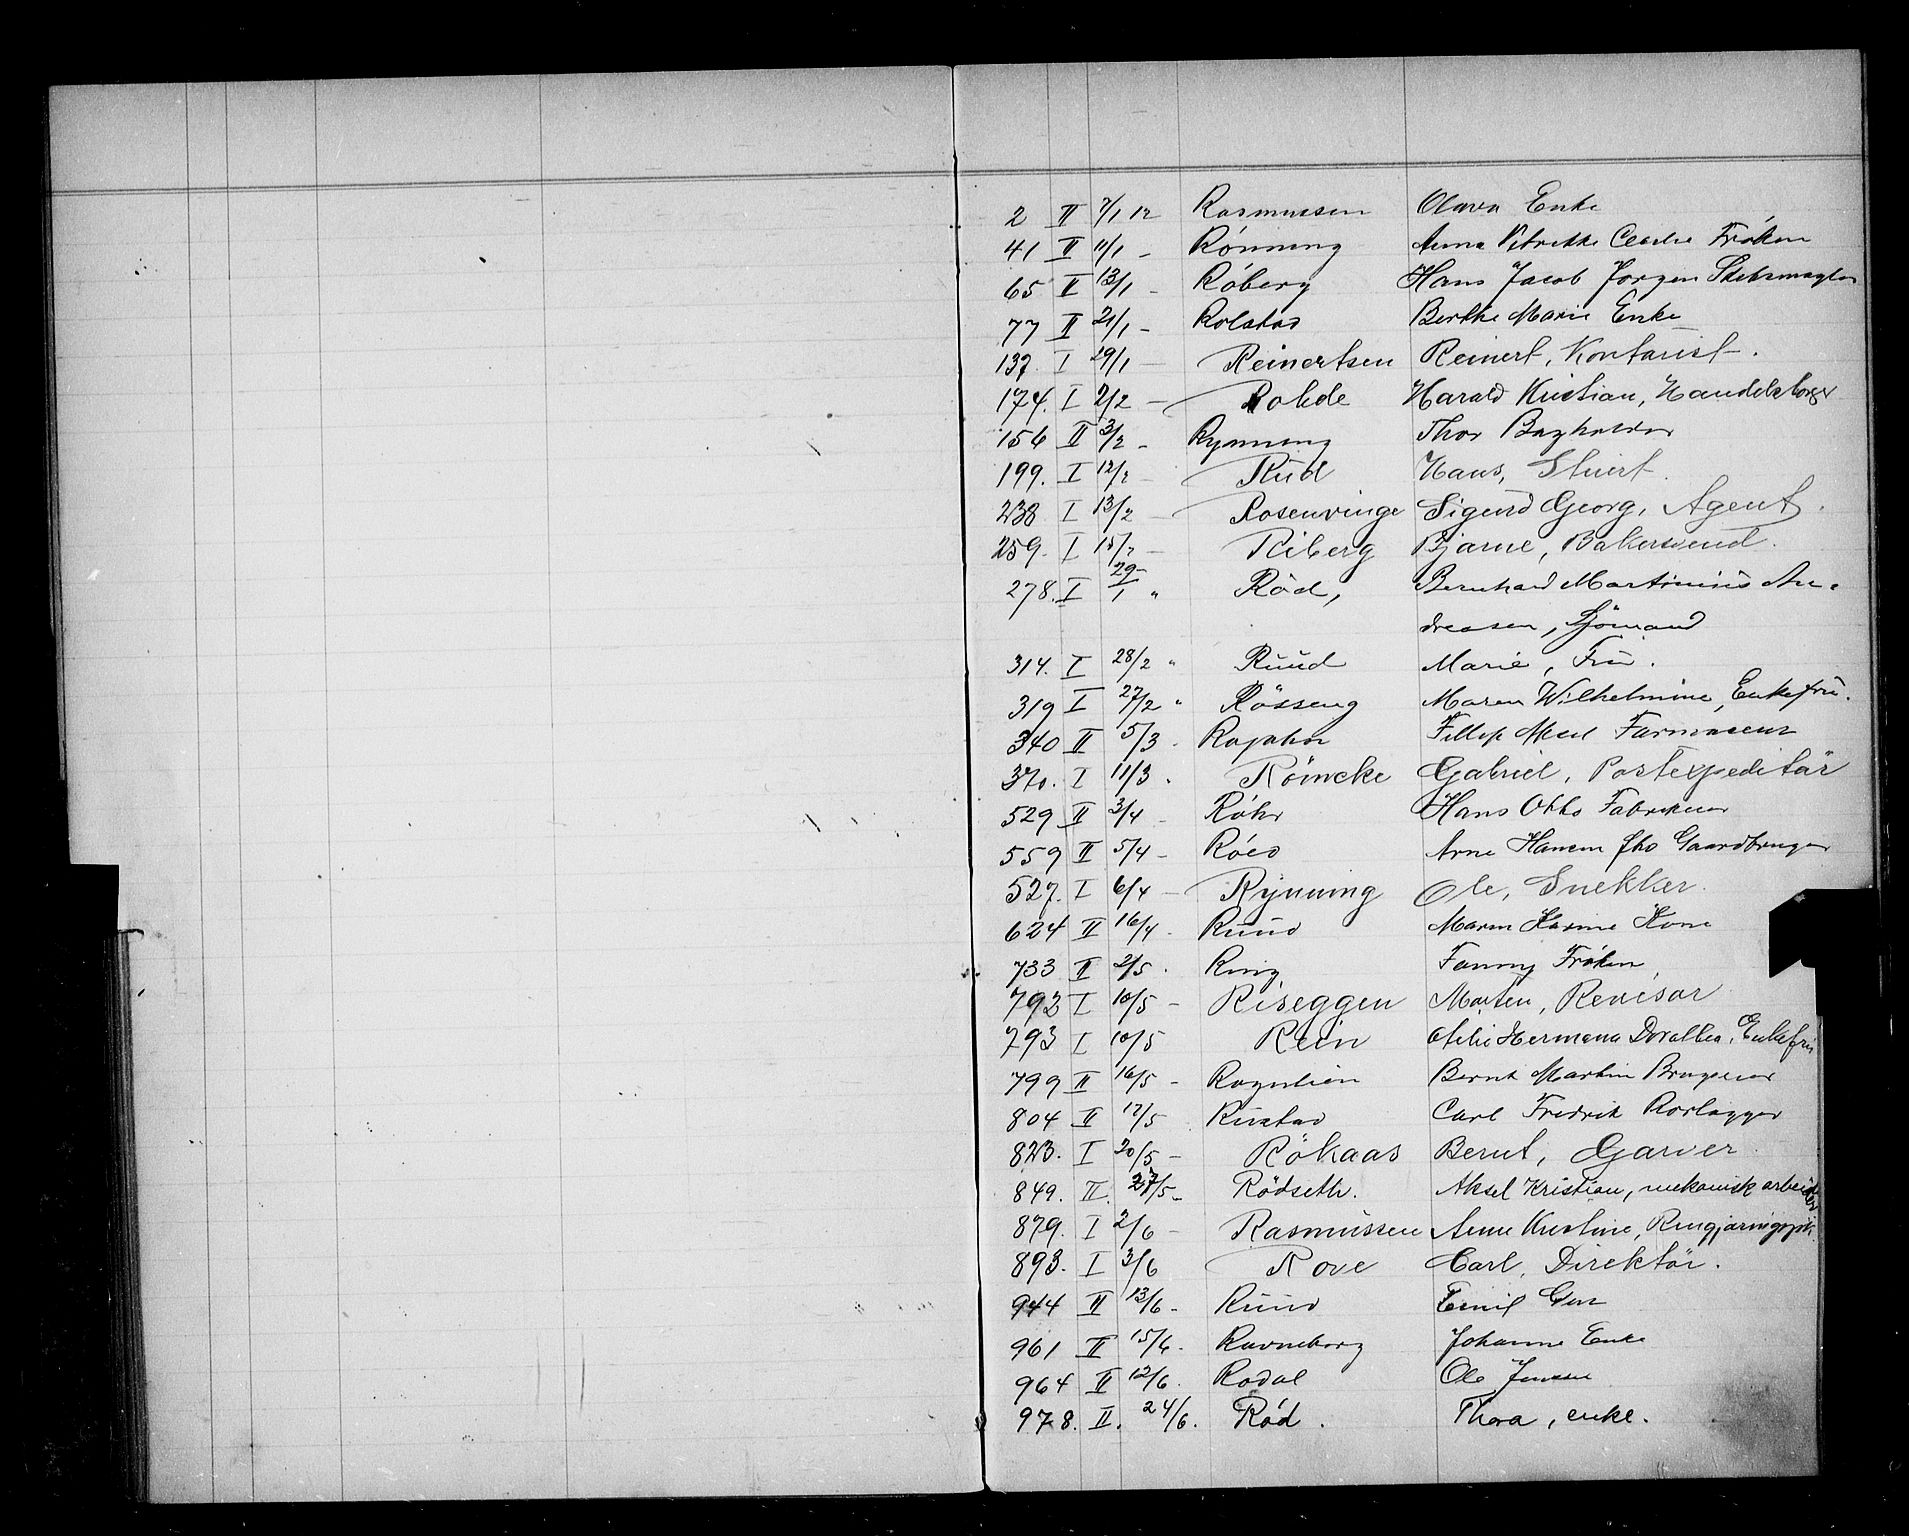 2 II 7/1 12 Rasmussen Olava Enke
41 II 11/1 - Rönning Anna Petrikke Cecilie Fröken
65 II 13/1 - Röberg Hans Jacob Jörgen
77 II 21/1 - Rolstad Berthe Marie Enke
137. I 29/1 - Reinertsen Reinert, Kontorist.
174. I 2/2 - Rohde Harald Kristian, Handelsborger
156 II 3/2 - Rynning Thor Bogholder
199. I 12/2 - Rud Hans, Stuert.
238 I 13/2 - Rosenvinge Sigurd Georg, Agent.
259. I 15/2 - Riberg Bjarne, Bakersvend.
278. I 29/1 " Röd, Bernhard Martinius An-
dreasen, Sjömand
314. I 28/2 " Ruud Marie, Fru.
319 I 27/2 " Rösseng Maren Wilhelmine, Enkefru.
340 II 5/3 - Fillip Farmaceut
370. I 11/3. Röincke Gabriel, Postexpeditör
529 II 3/4 - Röhr Hans Otto Fabrikeier
559 II 5/4 - Röed Arne Hansen Gaardbruger
527. I 6/4 - Rynning Ole, Snekker.
624 II 16/4. Ruud Maren Karine Kone
733 II 2/5. Ring Fanny Fröken
792 I 10/5 - Riseggen Morten, Revisor
793 I 10/5 Rein Otilie Hermana Dorothea, Enkefru
799 II 16/5 - Rognlien Bernt Martin Brugseier
804 II 17/5. Rustad Carl Fredrik Rorlægger
823. I 20/5 - Rökaas Bernt, Garver.
849. II. 27/5- Rödseth. Aksel Kristian, mekanisk arbeider
879. I 2/6 - Rasmussen Anne Kristine, Rengjöringspik.
893. I 3/6 Rove Carl, Direktör.
944 II 13/6 - Ruud Emil
961 II 15/6. Ravneborg Johanne Enke
964 II 12/6. Rodal Ole Jensen
978. II. 24/6. Röd. Thora, enke.